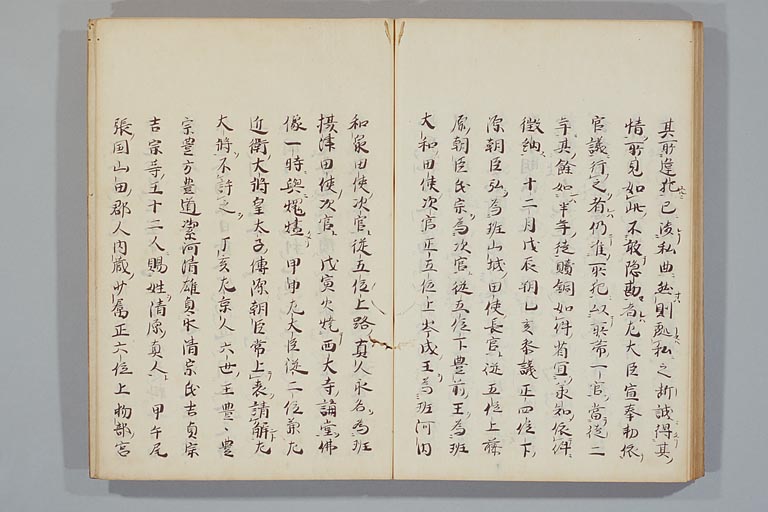 其所違犯已渉私曲然則処私之断誠得其
情所見如此不敢隠勘者左大臣宣奉勅依
官議行之者仍准所犯以所帯一官当徒二
年其餘如半年徒贖銅如件省宜承知依件
徴納十二月戊辰朔乙亥参議正四位下
源朝臣弘為班山城田使長官従五位上藤
原朝臣氏宗為次官従五位下豊前王為班
大和田使次官正五位上岑成王為班河内
和泉田使次官従五位上路真人永名為班
摂津田使次官戊寅火焼西大寺講堂仏
像一時與煨燼甲申左大臣従二位兼左
近衛大将皇太子傅源朝臣常上表請解左
大将不許之丁亥左京人六世王豊々豊
宗豊方豊道潔河清雄貞永清宗氏吉貞宗
吉宗等王十二人賜姓清原真人甲午尾
張国山田郡人内蔵少属正六位上物部宮